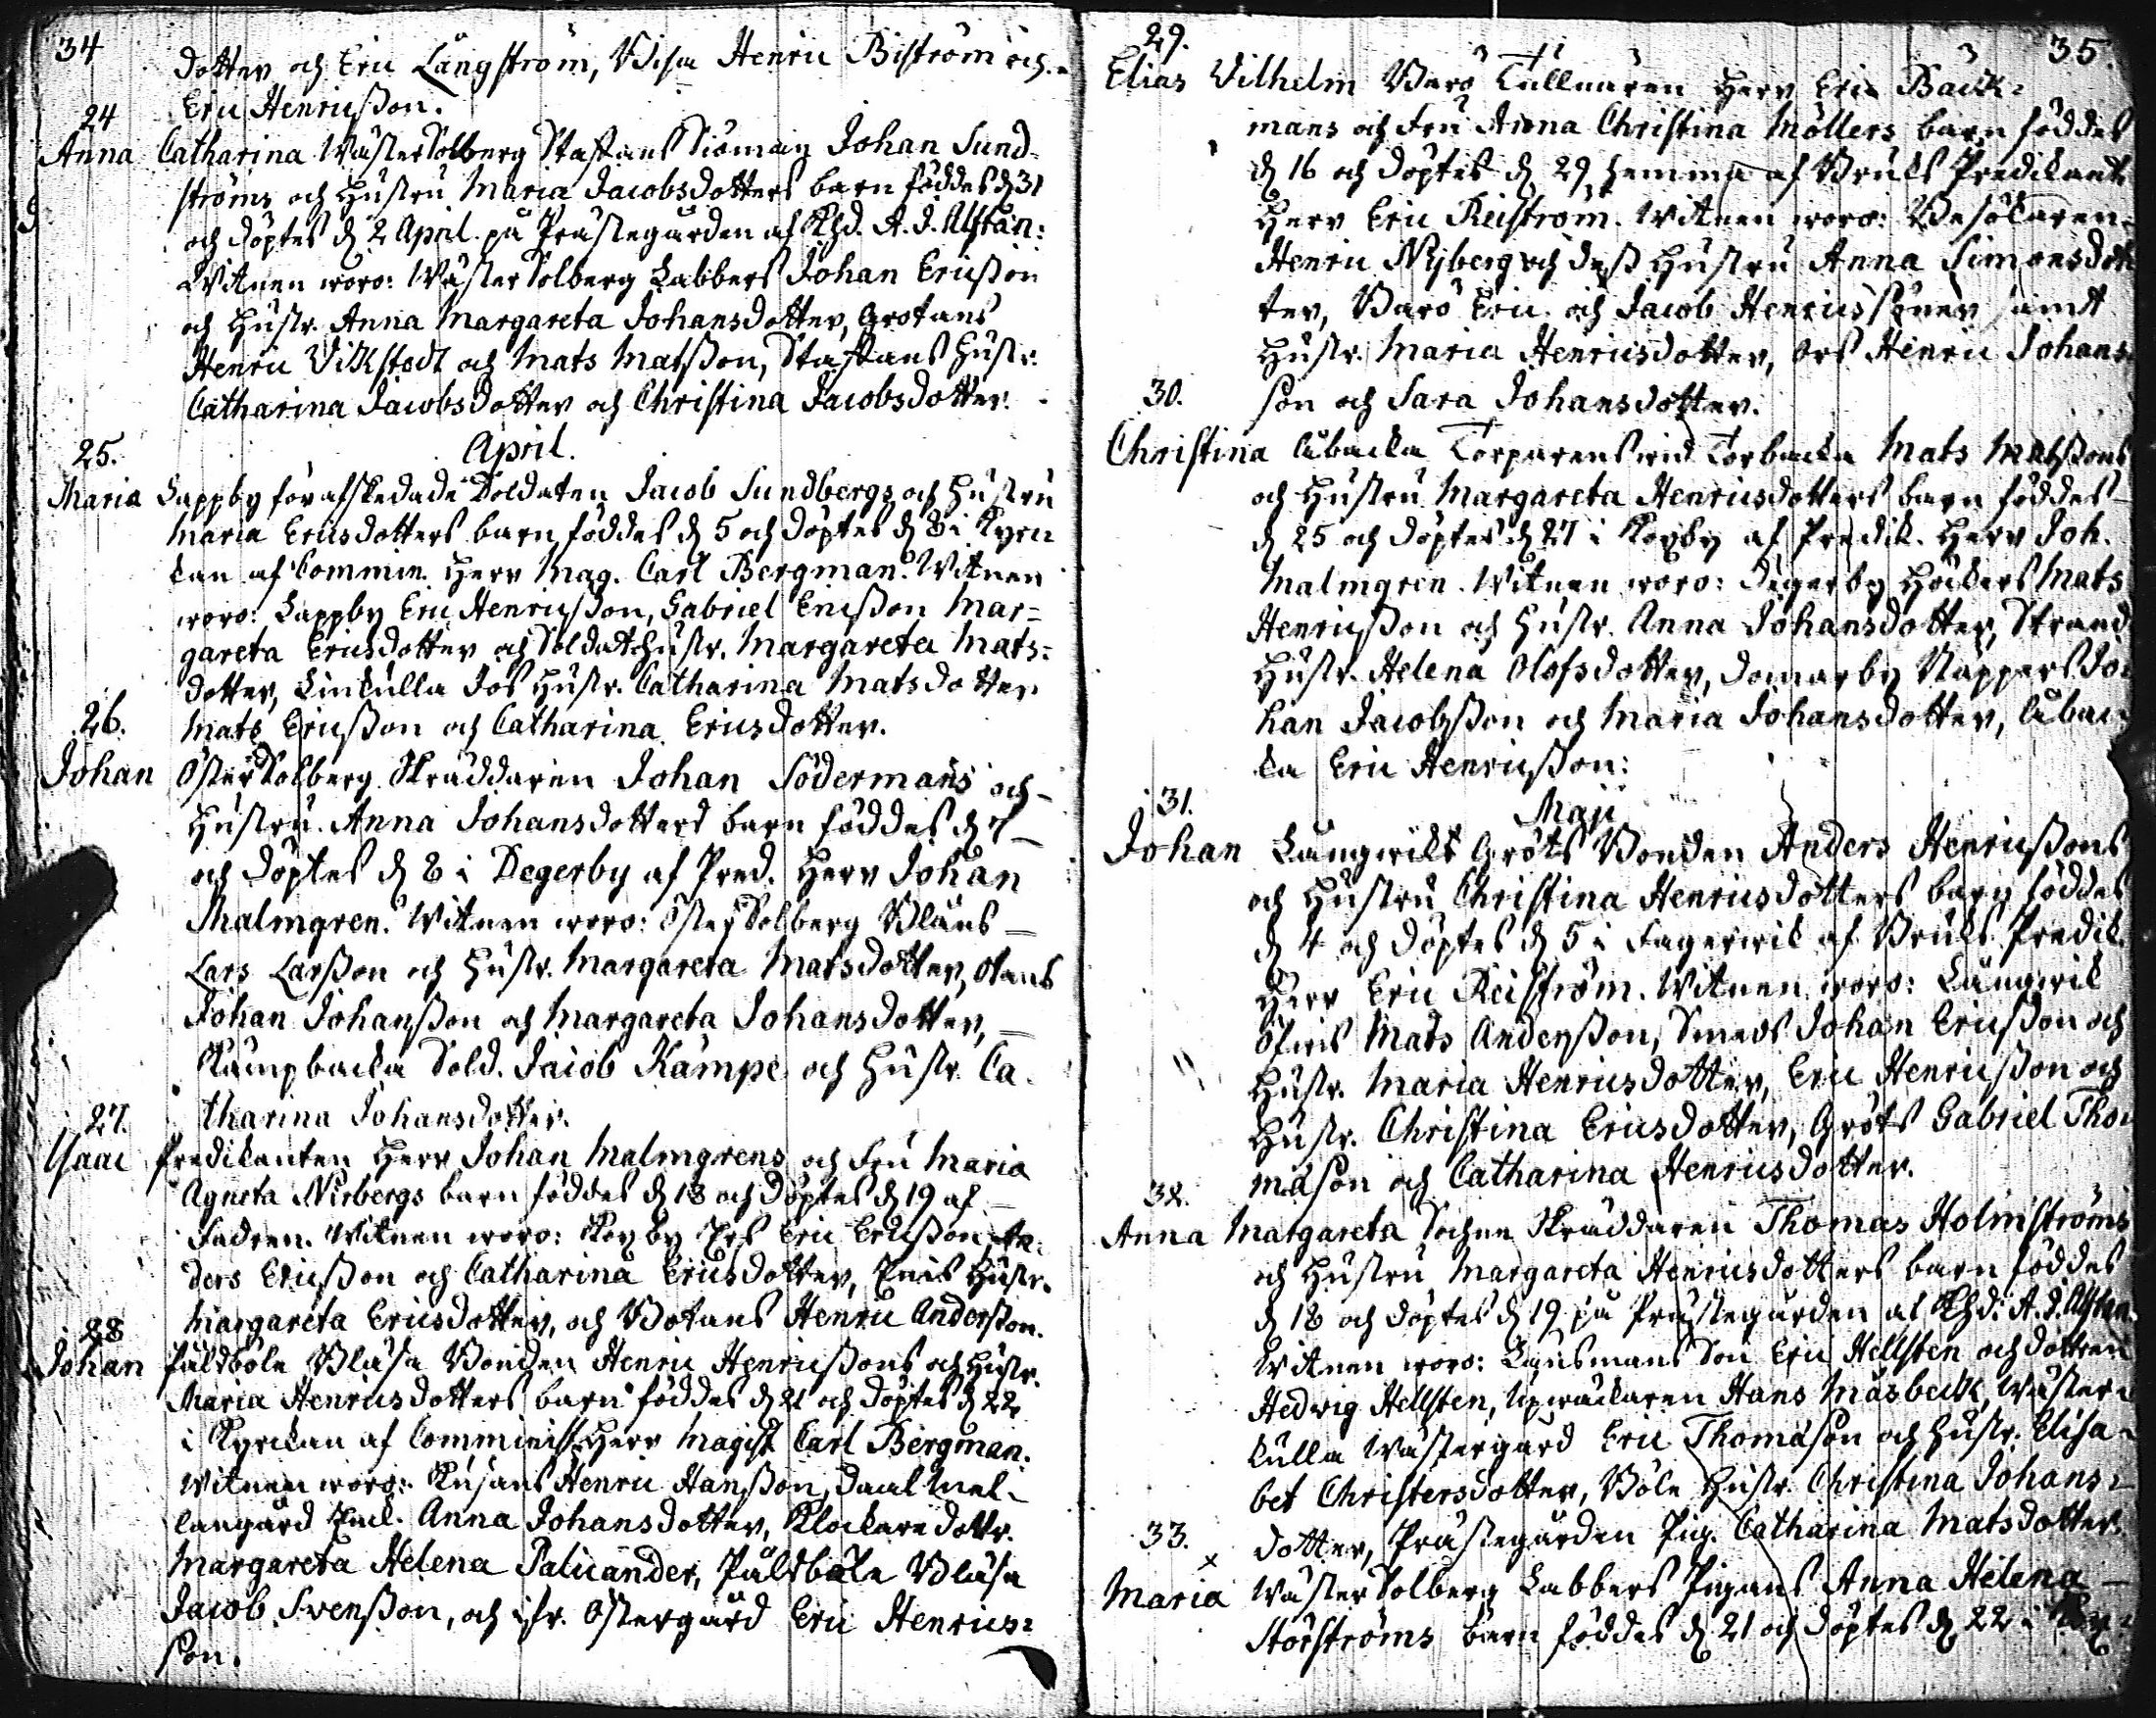 34
dotter och Eric Långström, Visa Henric Biström och
Eric Henricsson.
24
Anna Catharina WästerSolberg Staffans Sioman Johan Sund-
ströms och Hustru Maria Jacobsdotters barn föddes d 31
och döptes d 2 April på Prästegården af Khd. A. J. Alftan:
Witnen woro: WästerSolberg Labbers Johan Ericsson
och Hustr. Anna Margareta Johansdotter, Grotans
Henric Vikstedt och Mats Matsson, Staffans Hustr.
Catharina Jacobsdotter och Christina Jacobsdotter.
April.
25.
Maria Lappby förafskedade Soldaten Jacob Sundbergs och Hustru
Maria Ericsdotters barn föddes d 5 och döptes d 8 i Kyrc
kan af Commin. Herr Mag. Carl Bergman. Witnen
woro: Lappby Eric Henricsson, Gabriel Ericsson Mar=
gareta Ericsdotter och Soldathustr. Margareta Mats=
dotter, Linkulla Jos Hustr. Catharina Matsdotter
Mats Ericsson och Catharina Ericsdotter.
26.
Johan ÖsterSolberg Skräddaren Johan Södermans och
Hustru Anna Johansdotters barn föddes d
och döptes d 8 i Degerby af Pred. Herr Johan
Malmgren. Witnen woro: ÖsterSolberg Blåus
Lars Larsson och Hustr. Margareta Matsdotter,
Johan Johansson och Margareta Johansdotter,
Kämpbacka Sold. Jacob Kämpe och Hustr. Ca
tharina Johansdotter.
27.
Isaac Predikanten Herr Johan Malmgrens och Fru Maria
Agneta Nirbergs barn föddes d 18 och döptes d 19 af
Fadren. Witnen woro: Koxby Eric Ericsson An=
ders Ericsson och Catharina Ericsdotter, Hustr.
Margareta Ericsdotter, och Botans Henric Andersson.
28
Johan Påldböle Blåsa Bonden Henric Henricssons och Hustr.
Maria Henricsdotters barn föddes d 21 och döptes d 22
i Kyrckan af Comminist. Herr Magist. Carl Bergman.
Witnen woro: Kusans Henric Hansson, Daal Mel-
langård Anna Johansdotter, Klockare dottr.
Margareta Helena Palicander, Påldböle Blåsa
Jacob Svensson, och Östergård Eric Henrics=
son.
35.
29.
Elias Vilhelm Barö Tullnären Herr Eric Bäck=
mans och Fru Anna Christina Möllers barn föddes
d 16 och döptes d 29 hemma af Bruks Predikant
Herr Eric Reiström. Witnen woro: Besökaren
Henric Nyberg och dess Hustru Anna Simonsdot
ter, Barö Eric och Jacob Henricssöner samt
Hustr. Maria Henricsdotter, Ors Henric Johans
son och Sara Johansdotter.
30.
Christina Torparens wid Torbacka Mats Matssons
och Hustru Margareta Henricsdotters barn föddes
d 25 och döptes d 27 i Koxby af Predik. Herr Joh.
Malmgren. Witnen woro: Degerby Höckers Mats
Henricsson och Hustr. Anna Johansdotter, Strand
Hustr. Helena Olofsdotter, Domarby Näppers Jo
han Jacobsson och Maria Johansdotter,
ka Eric Henricsson:
Maji
31.
Johan Långwiks Gröts Bonden Anders Henricssons
och Hustru Christina Henricsdotters barn föddes
d 4 och döptes d 5 i Fagerwik af Bruks Predik.
Herr Eric Reiström. Witnen woro: Långwik
Mats Andersson, Smeds Johan Ericsson och
Hustr. Maria Henricsdotter, Eric Henricsson och
Hustr. Christina Ericsdotter, Gröts Gabriel Tho
masson och Catharina Henricsdotter.
32.
Anna Margareta Sochne Skräddaren Thomas Holmströms
och Hustru Margareta Henricsdotters barn föddes
d 18 och döptes d 19 på Prästegården af Khd. A. J. Alftan.
Witnen woro: Länsmans Son Eric Hellsten och dottren
Hedvig Hellsten, Upwäckaren Hans Måsbeck, Wäster
kulla Wästergård Eric Thomasson och Hustr. Elisa-
bet Christersdotter, Böle Hustr. Christina Johans=
dotter, Prästegården Pig. Catharina Matsdotter.
33.
x
Maria WästerSolberg Labbers Pigans Anna Helena
Storströms barn föddes d 21 och döptes d 22 i